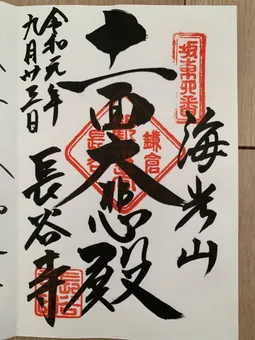 坂東四番
海光山
十一面大悲殿
鎌倉
長谷
長谷寺
令和元年
九月廿三日